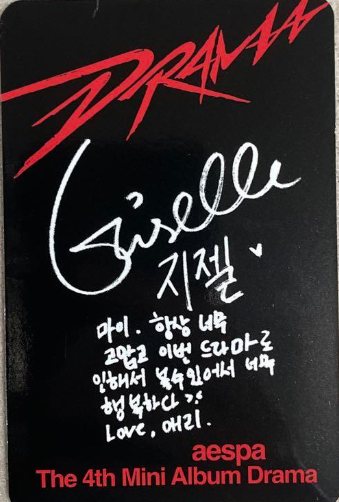 DRAMA
Giselle
지젤 ♥
마이. 항상 너무
고맙고 이번 드라마로
인해서 볼수있어서 너무
행복하다 ㅋㅋ
Love, 애리.
aespa
The 4th Mini Album Drama